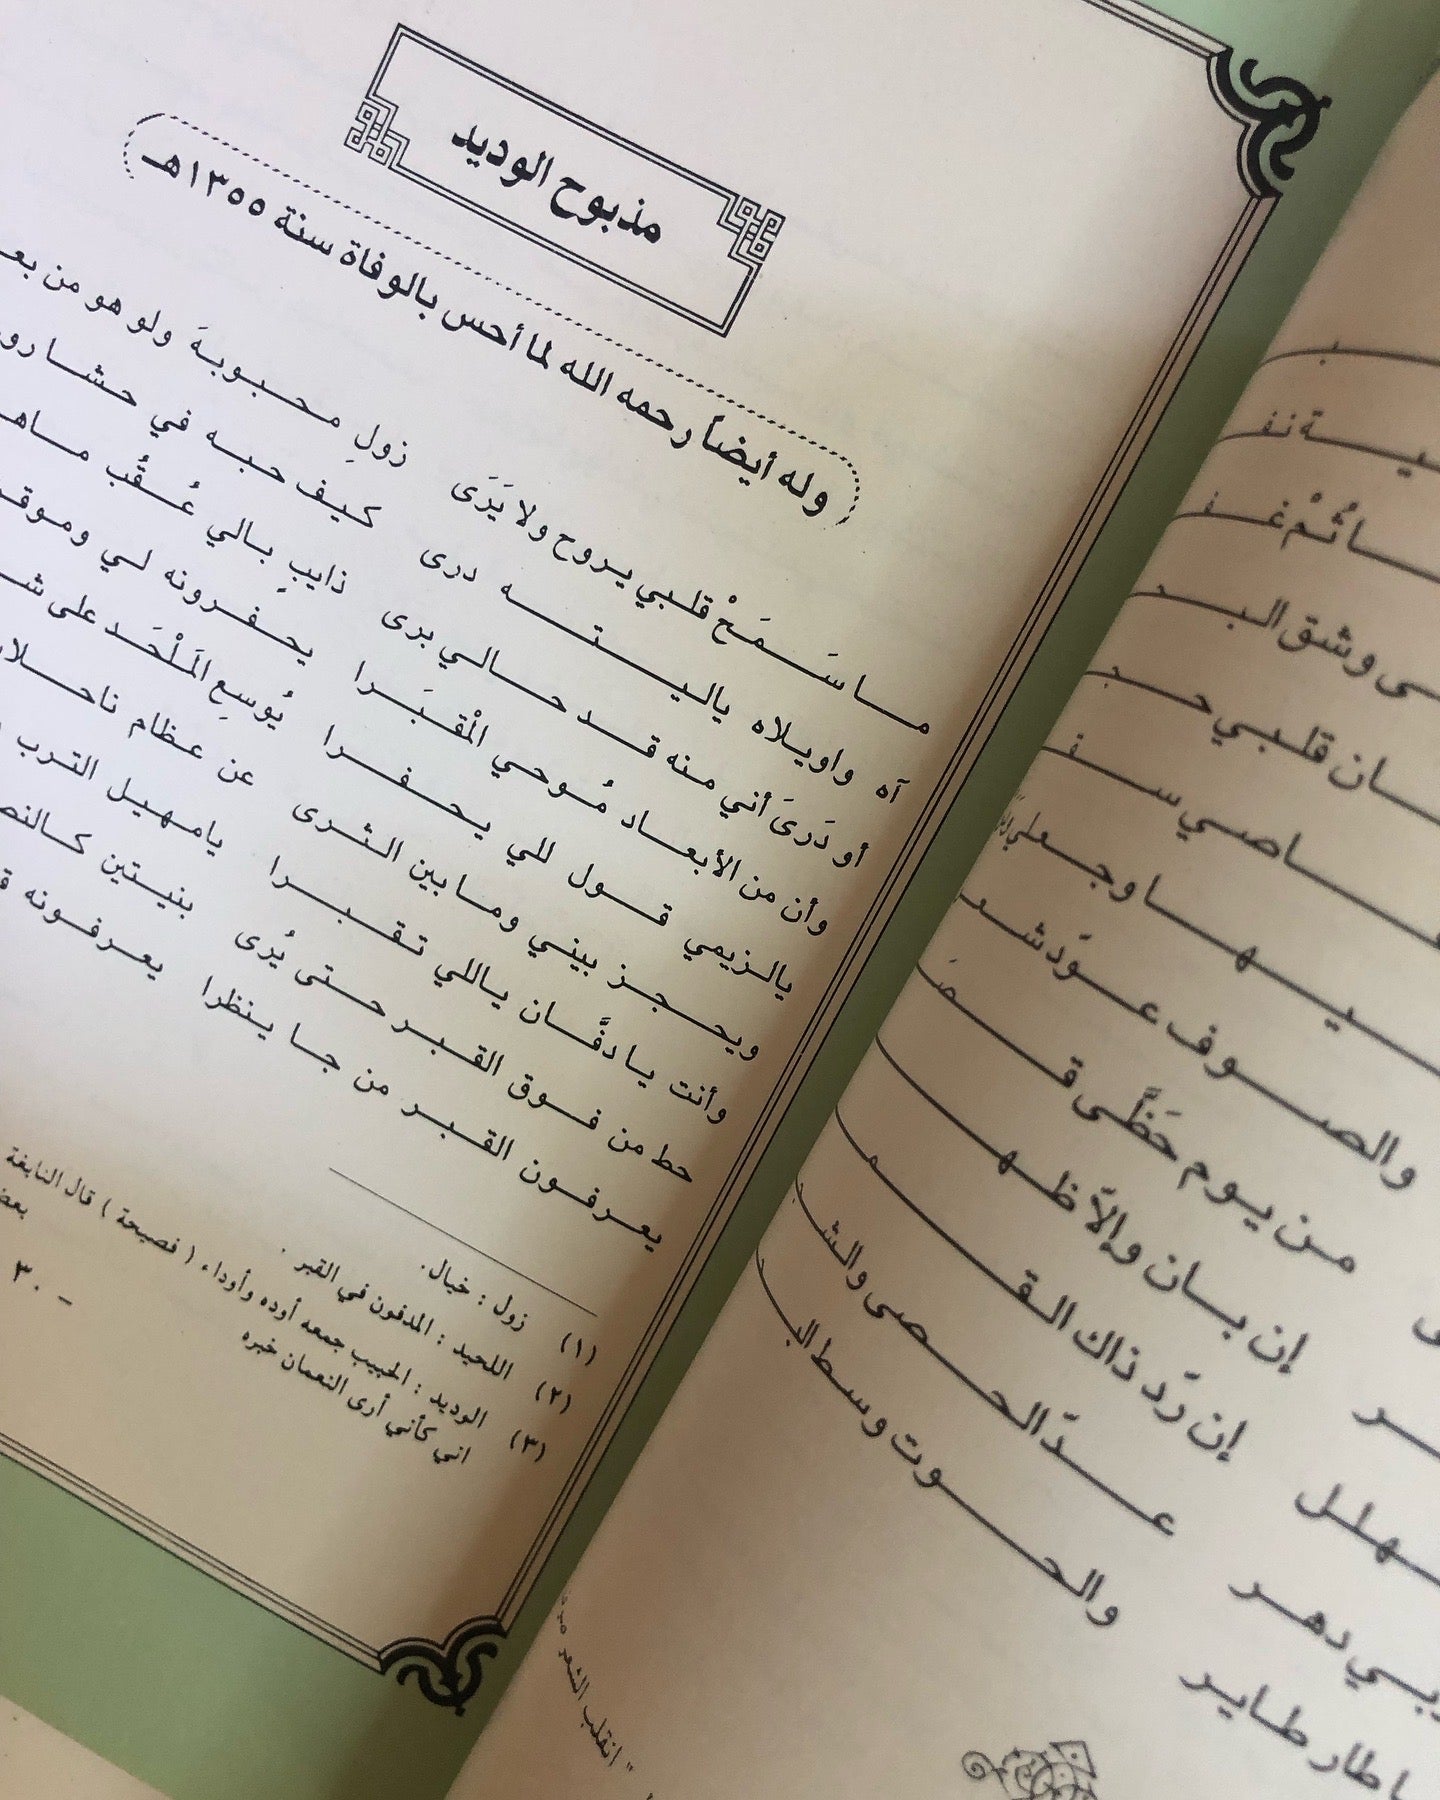 مذبوح الوديد
وله أيضاً رحمه الله لما أحس بالوفاة سنة ١٣٥٥هـ
ما سَمَحْ قلبي يروح ولا يَرَى زولِ محبوبهَ ولو هو من بعـ
آه واويلاه ياليته درى كيف حبه في حشا رو
أو دَرىَ أني منه قد حالي برى ذايبٍ بالي عُقُب ماهـ
وأن من الأبعاد مُوحي المْقبَرا يحفرونه لي وموقـ
يالزيمي قول للي يحفرا يُوسعِ المَلْحَد على شـ
ويحجز بيني وما بين الثرى عن عظام ناحلا
وأنت يا دفَّان ياللي تقبرا يامهيل الترب
حط من فوق القبر حتى يُرى بنيتين كالنصـ
يعرفون القبر من جا ينظرا يعرفونه قـ
(١) زول : خيال.
(٢) اللحيد : المدفون في القبر .
(٣) الوديد : الحبيب جمعه أوده وأوداء ( فصيحة ) قال النابغة
اني كأني أرى النعمان خبره بعض
٣٠ –
ـية نفـ
ـا ثُمْ غـ
ـى وشق البـ
ـان قلبي حجـ
ـاصي سـ
ـيها وجعلي
والصوف عوّد شعـ
من يوم حَظَّى قـ
إن بان وإلّا ظهـ
إن رّد ذاك القـ
عدّ الحصى والشـ
والحوت وسط البـ
ـهلل
ـي دهر
ـا طار طاير
" انقلب الشعر